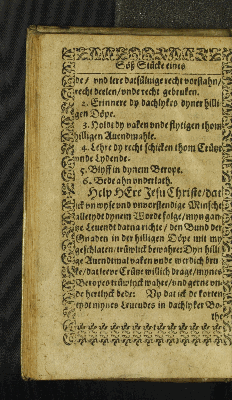 Söß Stücke eines
de / vnd lere datsüluige recht vorstahn /
recht deelen / vnde recht gebruken.
2. Erinnere dy dachlykes dyner hilli
gen Döpe.
3. Holdt dy vaken vnde flytigen thom
hilligen Auendtmahle.
4. Lehre dy recht schicken thom Crütze
vnde Lydende.
5. Blyff in dynem Berope.
6. Bede ahn vnderlath.
Help HErr Jesu Christe / dat
ick vn wyse vnd vnvorstendige Minsche
alletydt dynem Worde folge / myn gan-
tze Leuendt darna richte / den Bund der
Gnaden in der hilligen Döpe mit my
geschlaten / trüwlick bewahre: Dyn hilli
ge Auendtmal vaken vnde werdich bru
ke / dat leeve Crütze willich drage / mynes
Beropes trüwlyck wahre / vnd gerne vn-
de hertlyck bede: Vp dat ick de korten
tydt mynes Leuendes in dachlyker Bo-
the